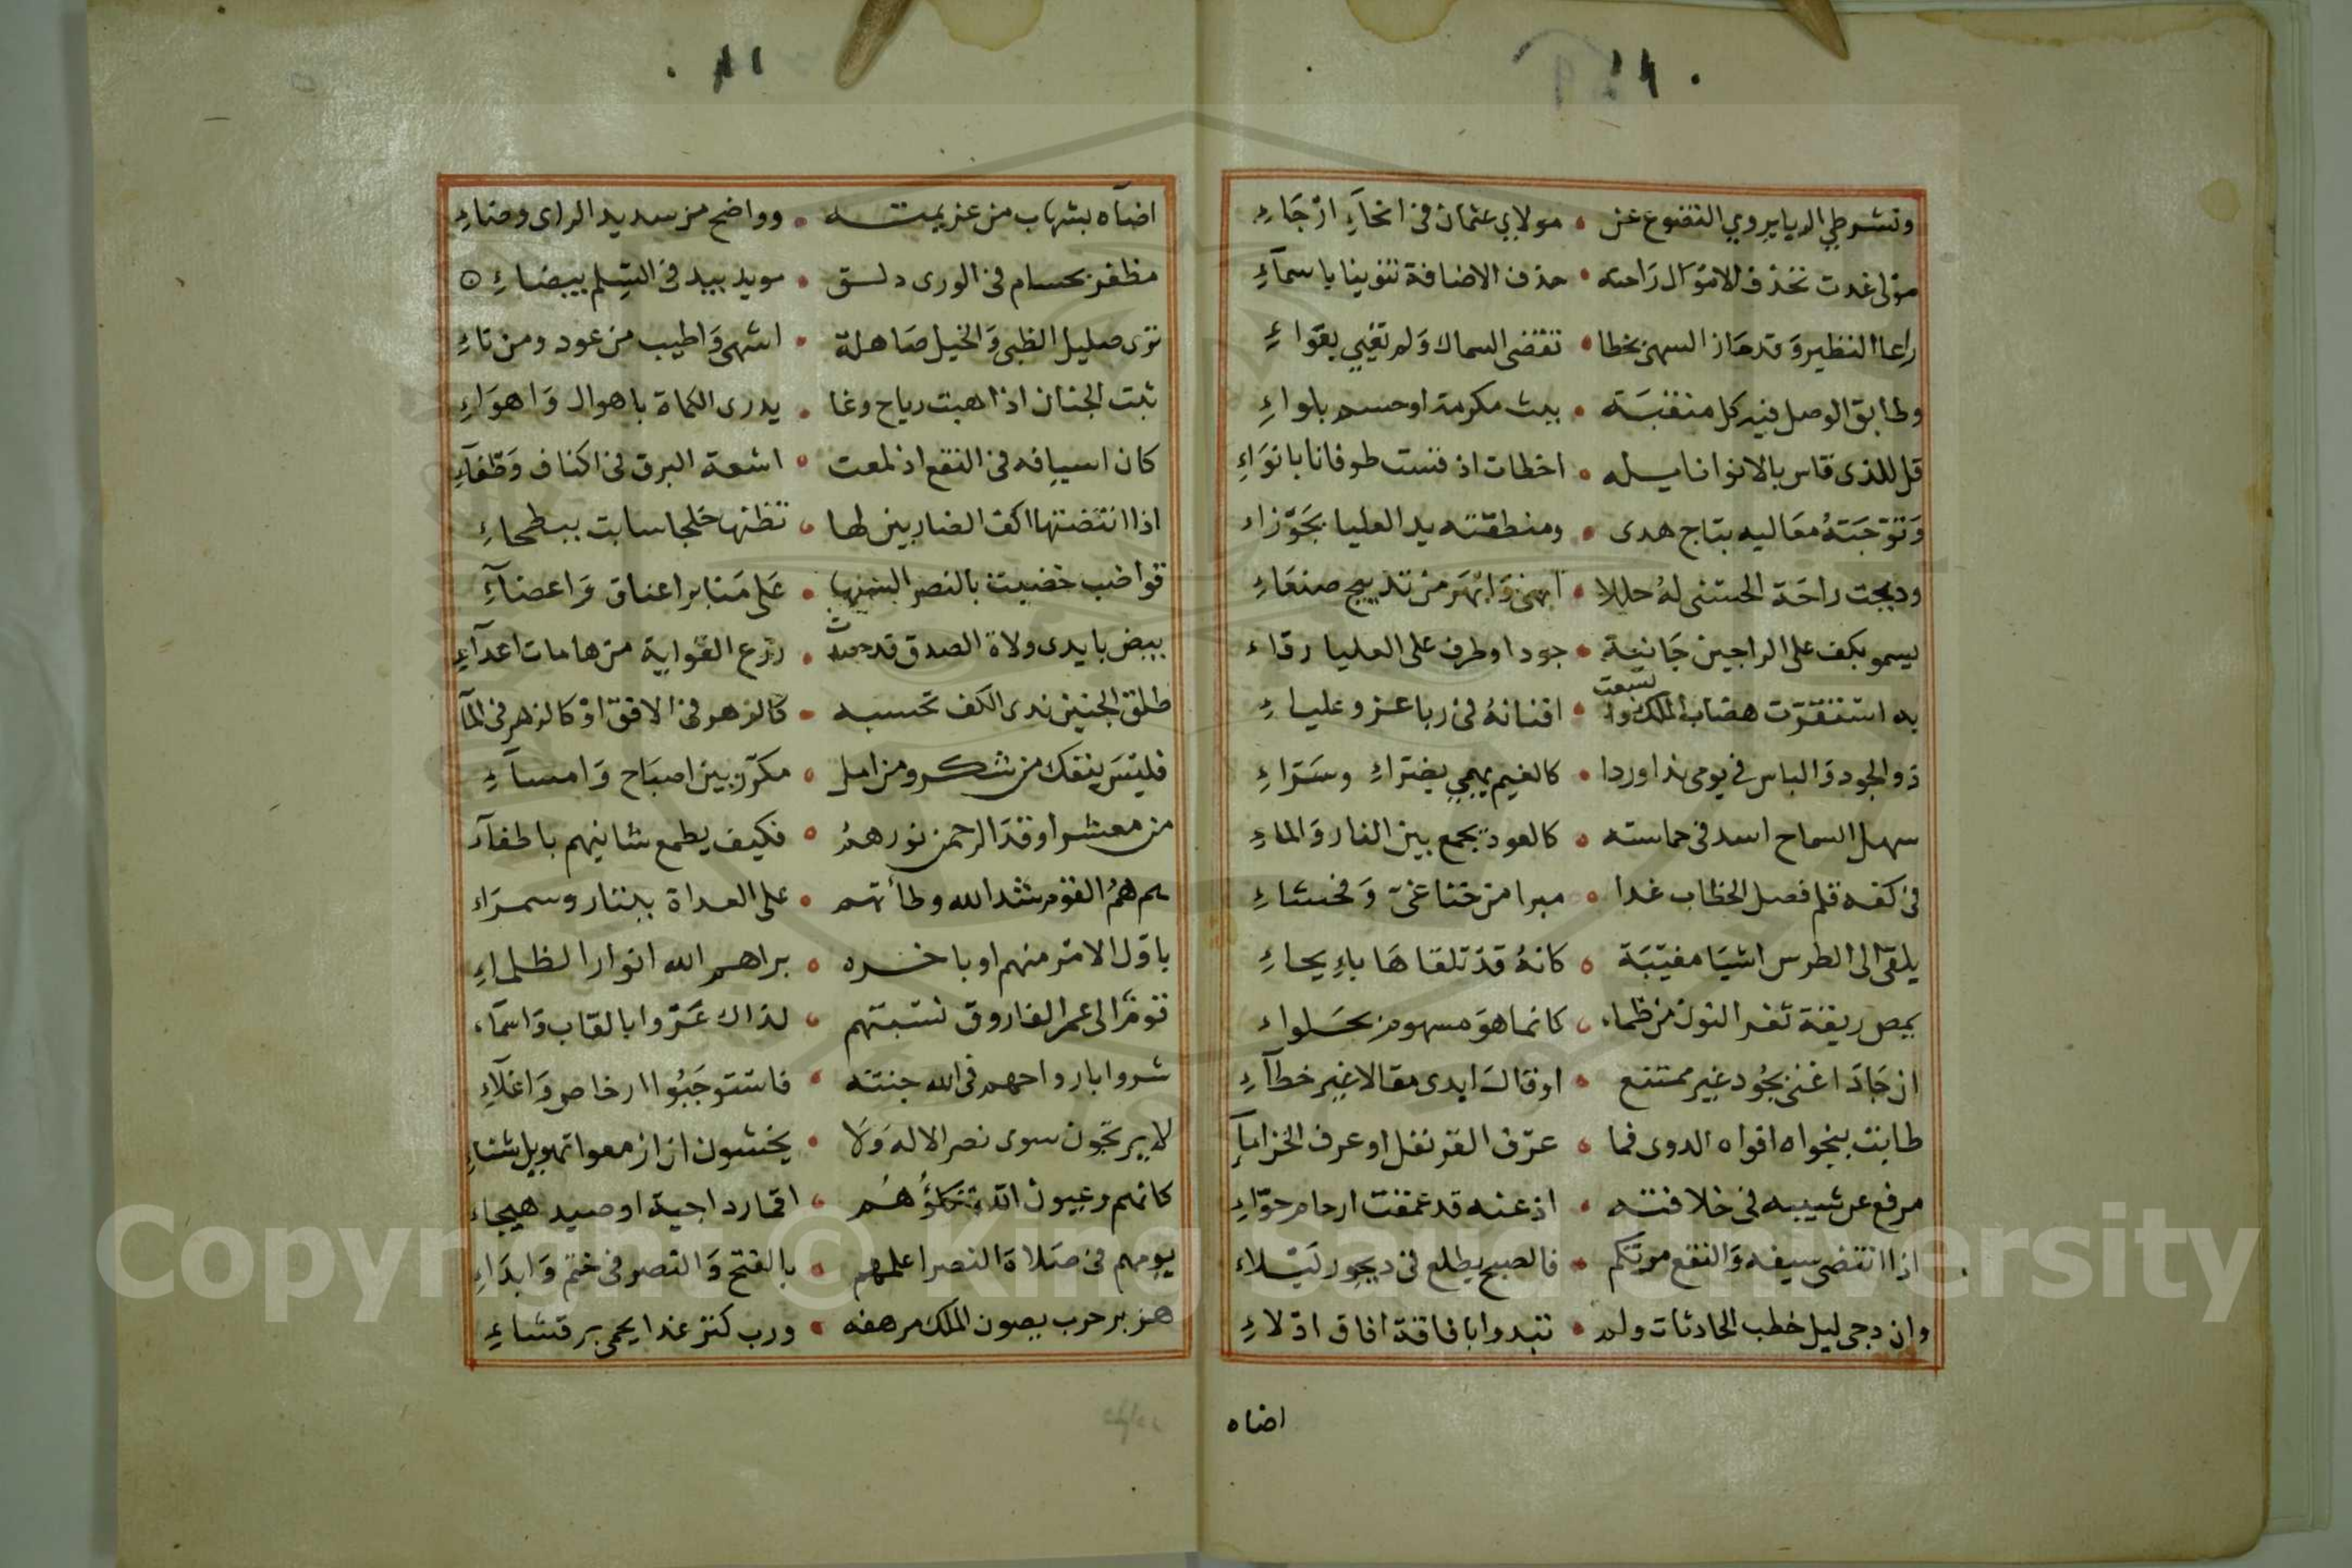 ١٠
ونشر طي الربا يروي التضوع عن • مولاي عثمان في انحآءِ ارْجَاءِ
مولى غدت تحذف الامْوَال رَاحته • حذف الاضافة تنوينا باسمآءِ
راعا النظير وَقد حَاز السهى بخطا • تقضى السماك وَلم تغيي بعَوّاءِ
وطابق الوصل فيه كل منقبَة • ببث مكرمة او حسم بلواءِ
قل للذي قاس بالانوا نايله • اخطات اذ قست طوفانا بانوَاءِ
وَتوّجَتهُ معَاليه بتاج هدى • ومنطقته يد العليا بجَوْزاء
ودبجت راحَة الحسنى لهُ حللا • ابهى وَابْهَر من تدبيج صنعَاءِ
يسمو بكف على الراجين جَانية • جودا وطرف على العليا رقاء
به استقرّت هضاب الملك واتسعت • افنانهُ في ربا عز وعلياءِ
ذو الجود وَالباس في يومى ندا وردا • كالغيم يهمي بضرّاءِ وسَرّاءِ
سهل السماح اسد في حماسته • كالعود يجمع بين النار وَالماءِ
في كفه قلم فصل الخطاب غدا • مبرا من خنا غيّ وَفحشاءِ
يلقى الى الطرس اشيَا مغيّبَة • كانهُ قدْ تلقاهَا باِيحاءِ
يمص ريقة ثغر النون من ظماء • كانما هوَ مسهوم بحَلواء
ان جَادَ اغنى بجُود غير ممتنع • او قال ابدى مقالا غير خطآءِ
طابت بنجواه افواه الدوى فما • عرْف القرنفل او عرف الخزامآءِ
مرفع عن شبيه في خلافته • اذ عنه قد عقمت ارحام حوّاءِ
اذا انتضى سيفه وَالنقع مرتكم • فالصبح يطلع في ديجور ليْلاء
وان دجى ليل خطب الحادثات ولم • تبدوا بافاقة افاق ادلاءِ
اضاه
١١
اضآه بشهاب من عزيمته • وواضح من سديد الراى وضاءِ
مظفر بحسام في الورى دلق • مويد بيد في السِلم بيضاءِ
ترى صليل الظبى وَالخيل صَاهلة • اشهى وَاطيب من عود ومن ناءِ
ثبت الجنان اذا هبت رياح وغا • يدرى الكماة باهوال وَاهوَاءِ
كان اسيافه في النقع اذ لمعت • اشعة البرق في اكناف وَطفآءِ
اذا انتضتها اكف الضاربين لها • تظنها خلجا سابت ببطحاءِ
قواضب خضبت بالنصر السنها • عَلى مَنابر اعناق وَاعضآءِ
ببيض بايدى ولاة الصدق قد حصدت • زرع الغواية من هامات اعدآءِ
طلق الجبين ندى الكف تحسبه • كالزهر في الافق اوْ كالزهر في المآ
فليسَ ينفك من شكر ومن امل • مكرّر بين اصبَاح وَامسآءِ
من معشر اوقدَ الرحمن نورهمُ • فكيف يطمع شانيهم باطفآء
هم همُ القوم شد الله وطأتهم • على العداة ببتار وسمرَاء
باوّل الامْر منهم او باخره • براهم الله انوارا لظلماءِ
قومٌ الى عمر الفاروق نسبتهم • لذاك عَزّوا بالقاب وَاسمآء
شروا بارواحهم في الله جنته • فاستوجَبُوا ارخاص وَاغلآءِ
لا يرتجون سوى نصر الاله وَلا • يخشون ان ازمعوا تهويل شناءِ
كانهم وعيون الله تكلؤُهُم • اقمار داجية او صيد هيجاء
يومهم في صَلاة النصر اعلمهم • بالفتح وَالنصر في ختم وَابدَاءِ
هزبر حرب يصون الملك مرهفه • ورب كنز غدا يحمى برقشاءِ
Copyright © King Saud University